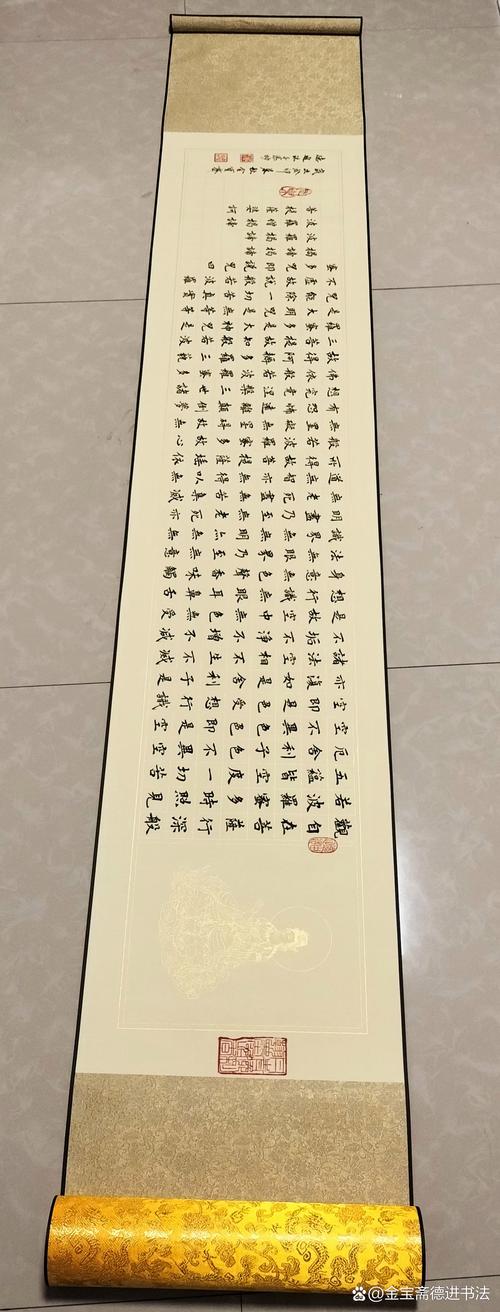 觀自在菩薩行深般
若波羅蜜多時照見
五蘊皆空度一切苦
厄舍利子色不異空
空不異色色即是空
空即是色受想行識
亦復如是舍利子是
諸法空相不生不滅
不垢不淨不增不減
是故空中無色無受
想行識無眼耳鼻舌
身意無色聲香味觸
法無眼界乃至無意
識界無無明亦無無
明盡乃至無老死亦
無老死盡無苦集滅
道無智亦無得以無
所得故菩提薩埵依
般若波羅蜜多故心
無罣礙無罣礙故無
有恐怖遠離顛倒夢
想究竟涅槃三世諸
佛依般若波羅蜜多
故得阿耨多羅三藐
三菩提故知般若波
羅蜜多是大神咒是
是大明咒是無等等
咒能除一切苦真實
不虛故說般若波羅
蜜多咒即說咒曰
揭諦揭諦
波羅揭諦
波羅僧揭諦
菩提薩婆訶
金寶齋
@金宝斋德进书法